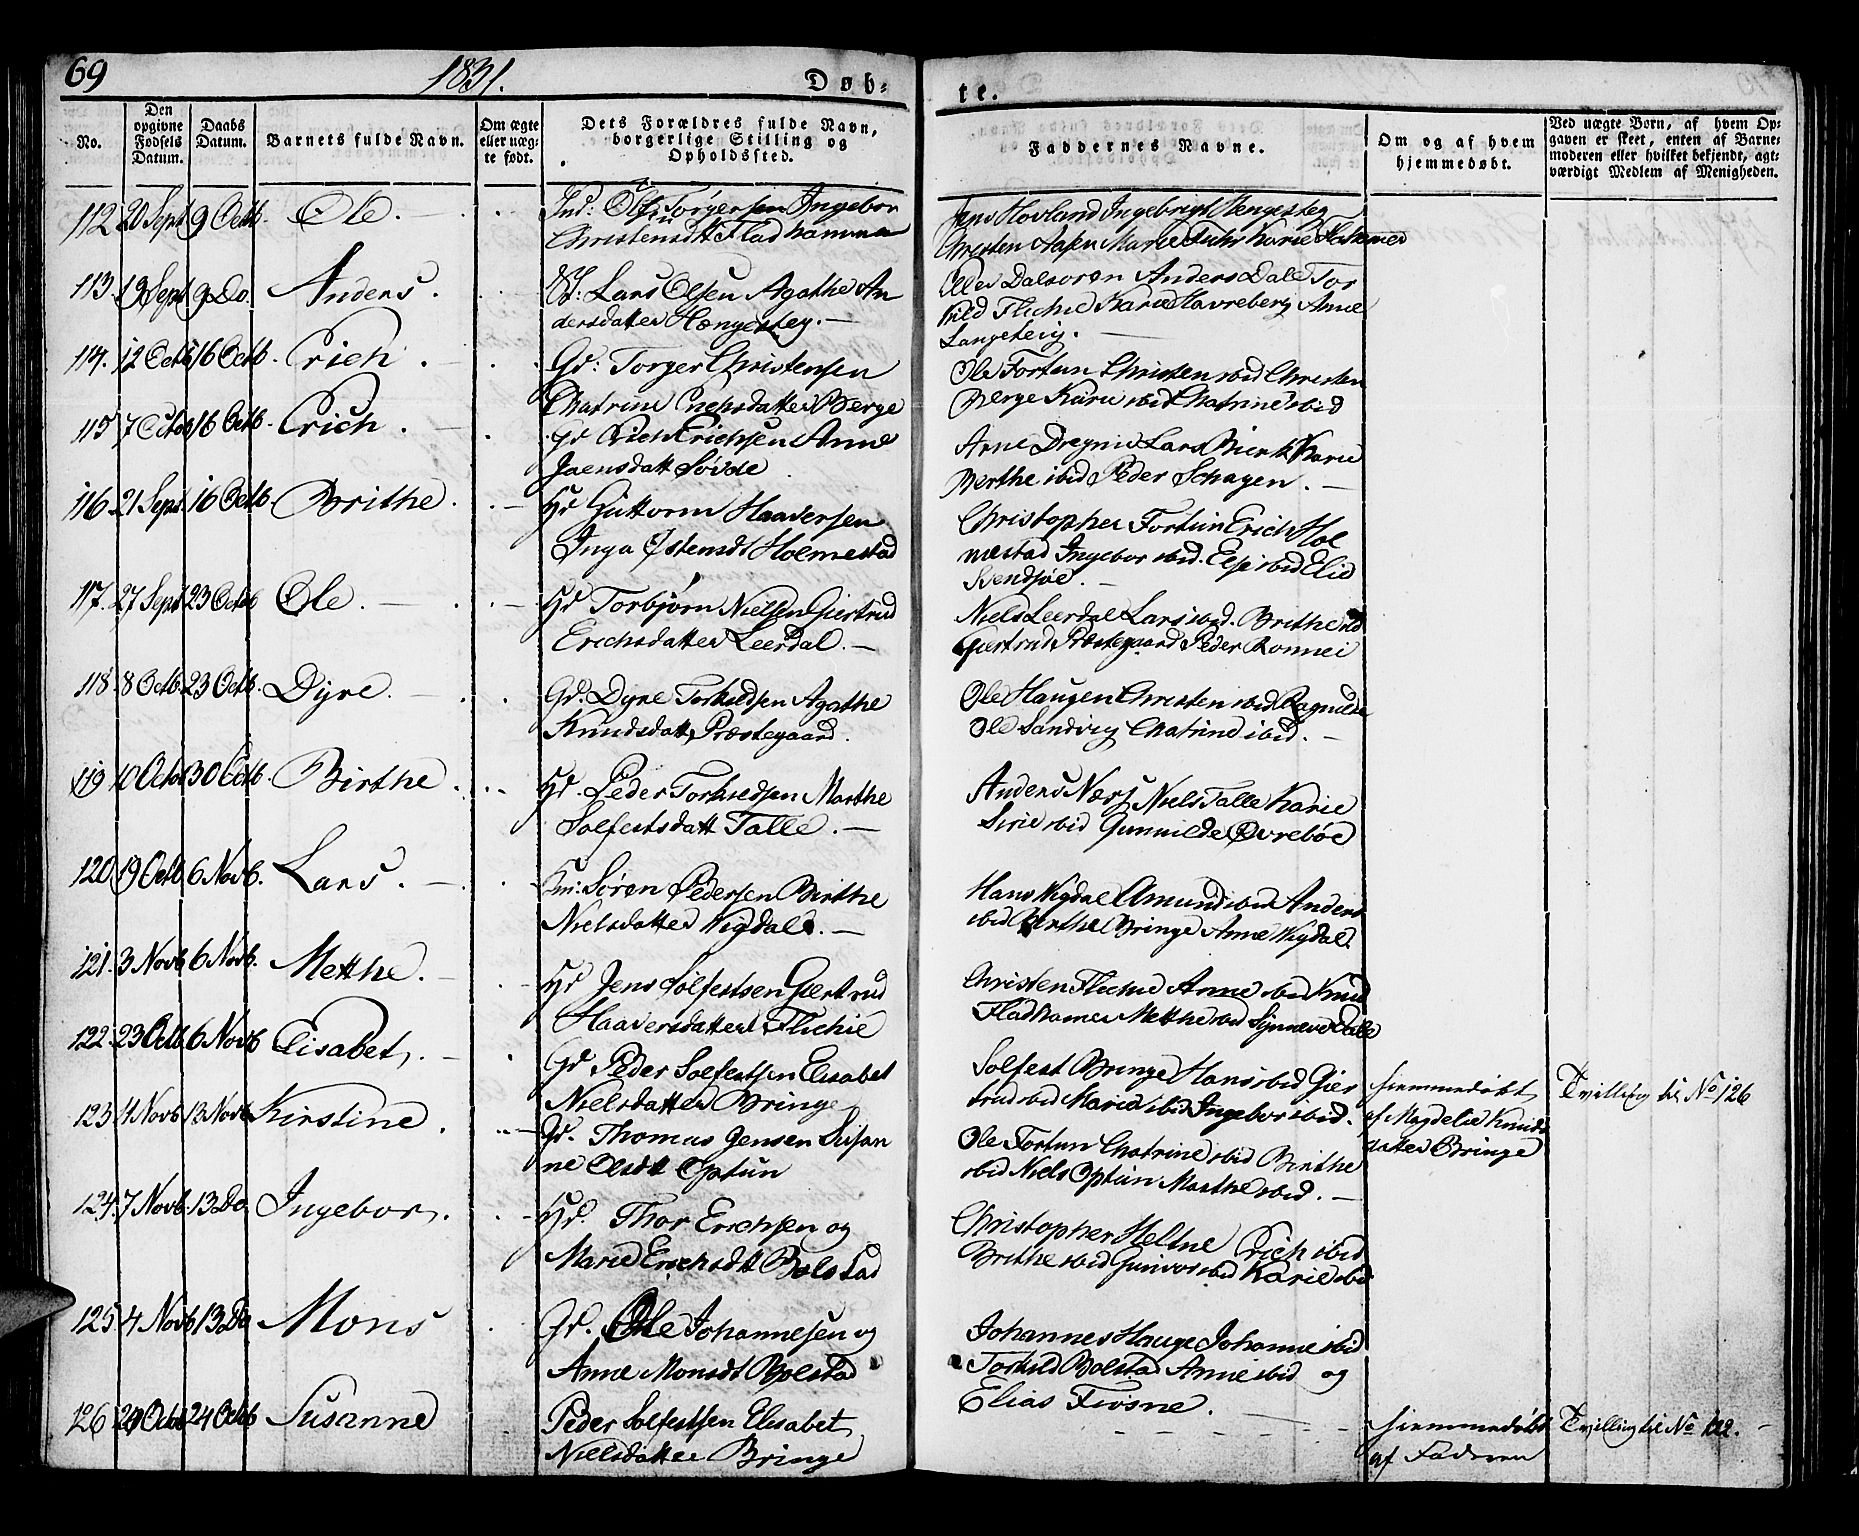 69
1831.
Døb-
te.
No.
Den opgivne Fødsels Datum.
Daabs Datum.
Barnets fulde Navn.
Om ægte eller uægte født.
Dets Forældres fulde Navn, borgerlige Stilling og Opholdssted.
Faddernes Navne.
Om og af hvem hjemmedøbt.
Ved uægte Born, af hvem Opgaven er skeet, enten af Barnemoderen eller hvilket bekjendt, agtværdigt Medlem af Menigheden.
112 20 Sept 9 Octb. Ole.
Ind: Ole Torgersen Ingebor
Christensdtt Fladhammer
Jens Hovland Ingebrigt Hengesteg
Christen Aasen Marie Fuhr Karie
113 13 Sept 9 Do. Anders.
Lars Olsen Agathe An
dersdatter Hængesteg.
Dalsøren Anders Dale Tor
kild Flichie Karie Havreberg Anne
Langeteig.
114. 12 Octb 16 Octb. Erich.
Gr: Torger Christensen
Chatrine Erichsdatter Berge
Ole Fortun Christen ibid Christen
Berge Karie ibid Chatrine ibid
115 7 Octob 16 Octb. Erich.
Gr Erich Erichsen Anne
Joensdatt Søvde
Arne Dregnie Lars Karie
Berthe ibid Peder Schagen.
116 21 Sept. 16 Octb. Brithe.
Hd Guttorm Haaversen
Inga Østensdt Holmestad
Christopher Fortun Erich Hol
mestad Ingebor ibid. Else ibid Elie
117. 27 Sept 23 Octob Ole.
Hd Torbjørn Nielsen Giertrud
Erichsdatter Leerdal.
Niels Leerdal Lars ibid. Brithe ibid
Giertrud Præstegaard Peder Ronnei
118. 8 Octb. 23 Octb. Dyre.
Gd. Dyre Torkildsen Agathe
Knudsdatt Præstegaard.
Ole Haugen Christen ibid Ragnilde
Ole Sandvig Chatrine ibid.
119 10 Octob 30 Octb. Birthe.
Hd. Peder Torkildsen Marthe
Solfestsdatt Talle.
Anders Næss Niels Talle Karie
Sirie ibid Gunnilde Øvrebøe
120 19 Octb. 6 Novb. Lars.
Søren Pedersen Birthe
Nielsdatter Vigdal.
Hans Vigdal Amund ibid Anders
ibid Berthe Bringe Anne Vigdal.
121. 3 Novb 6 Novb. Metthe.
Hd Jens Solfestsen Giertrud
Haaversdatter Flichie
Christen Flichie Anne ibid Knud
Fladhamer Metthe ibid Synneve Dale
122. 23 Octb. 6 Novb Elisabet.
Gd Peder Solfestsen Elisabet
Nielsdatter Bringe
Solfest Bringe Hans ibid Gier
trud ibid Marie ibid Ingebor ibid.
hiemmedøbt
af Magdelie Knuds
datter Bringe
Tvilling til No 126
123. 4 Novb. 13 Novb Kirstine.
Gr. Thomas Jensen Susan
ne Olsdtt Optun
Ole Fortun Chatrine ibid Birthe
ibid Niels Optun Marthe ibid.
124. 7 Novb. 13 Do. Ingebor.
Hd. Thor Erichsen og
Marie Erichsdtt Bolstad
Christopher Heltne Erich ibid
Brithe ibid Gunvor ibid Karie ibid
125. 4 Novb 13 Do Mons
Gd. Ole Johannesen og
Anne Monsdt Bolstad
Johannes Hauge Johanne ibid
Torkild Bolstad Anne ibid og
Elias Fiøsne.
126 Octob 24 Octob Susanne
Peder Solfestsen Elisabet
Nielsdatter Bringe
hiemmedøbt
af Faderen
Tvilling til No 122.